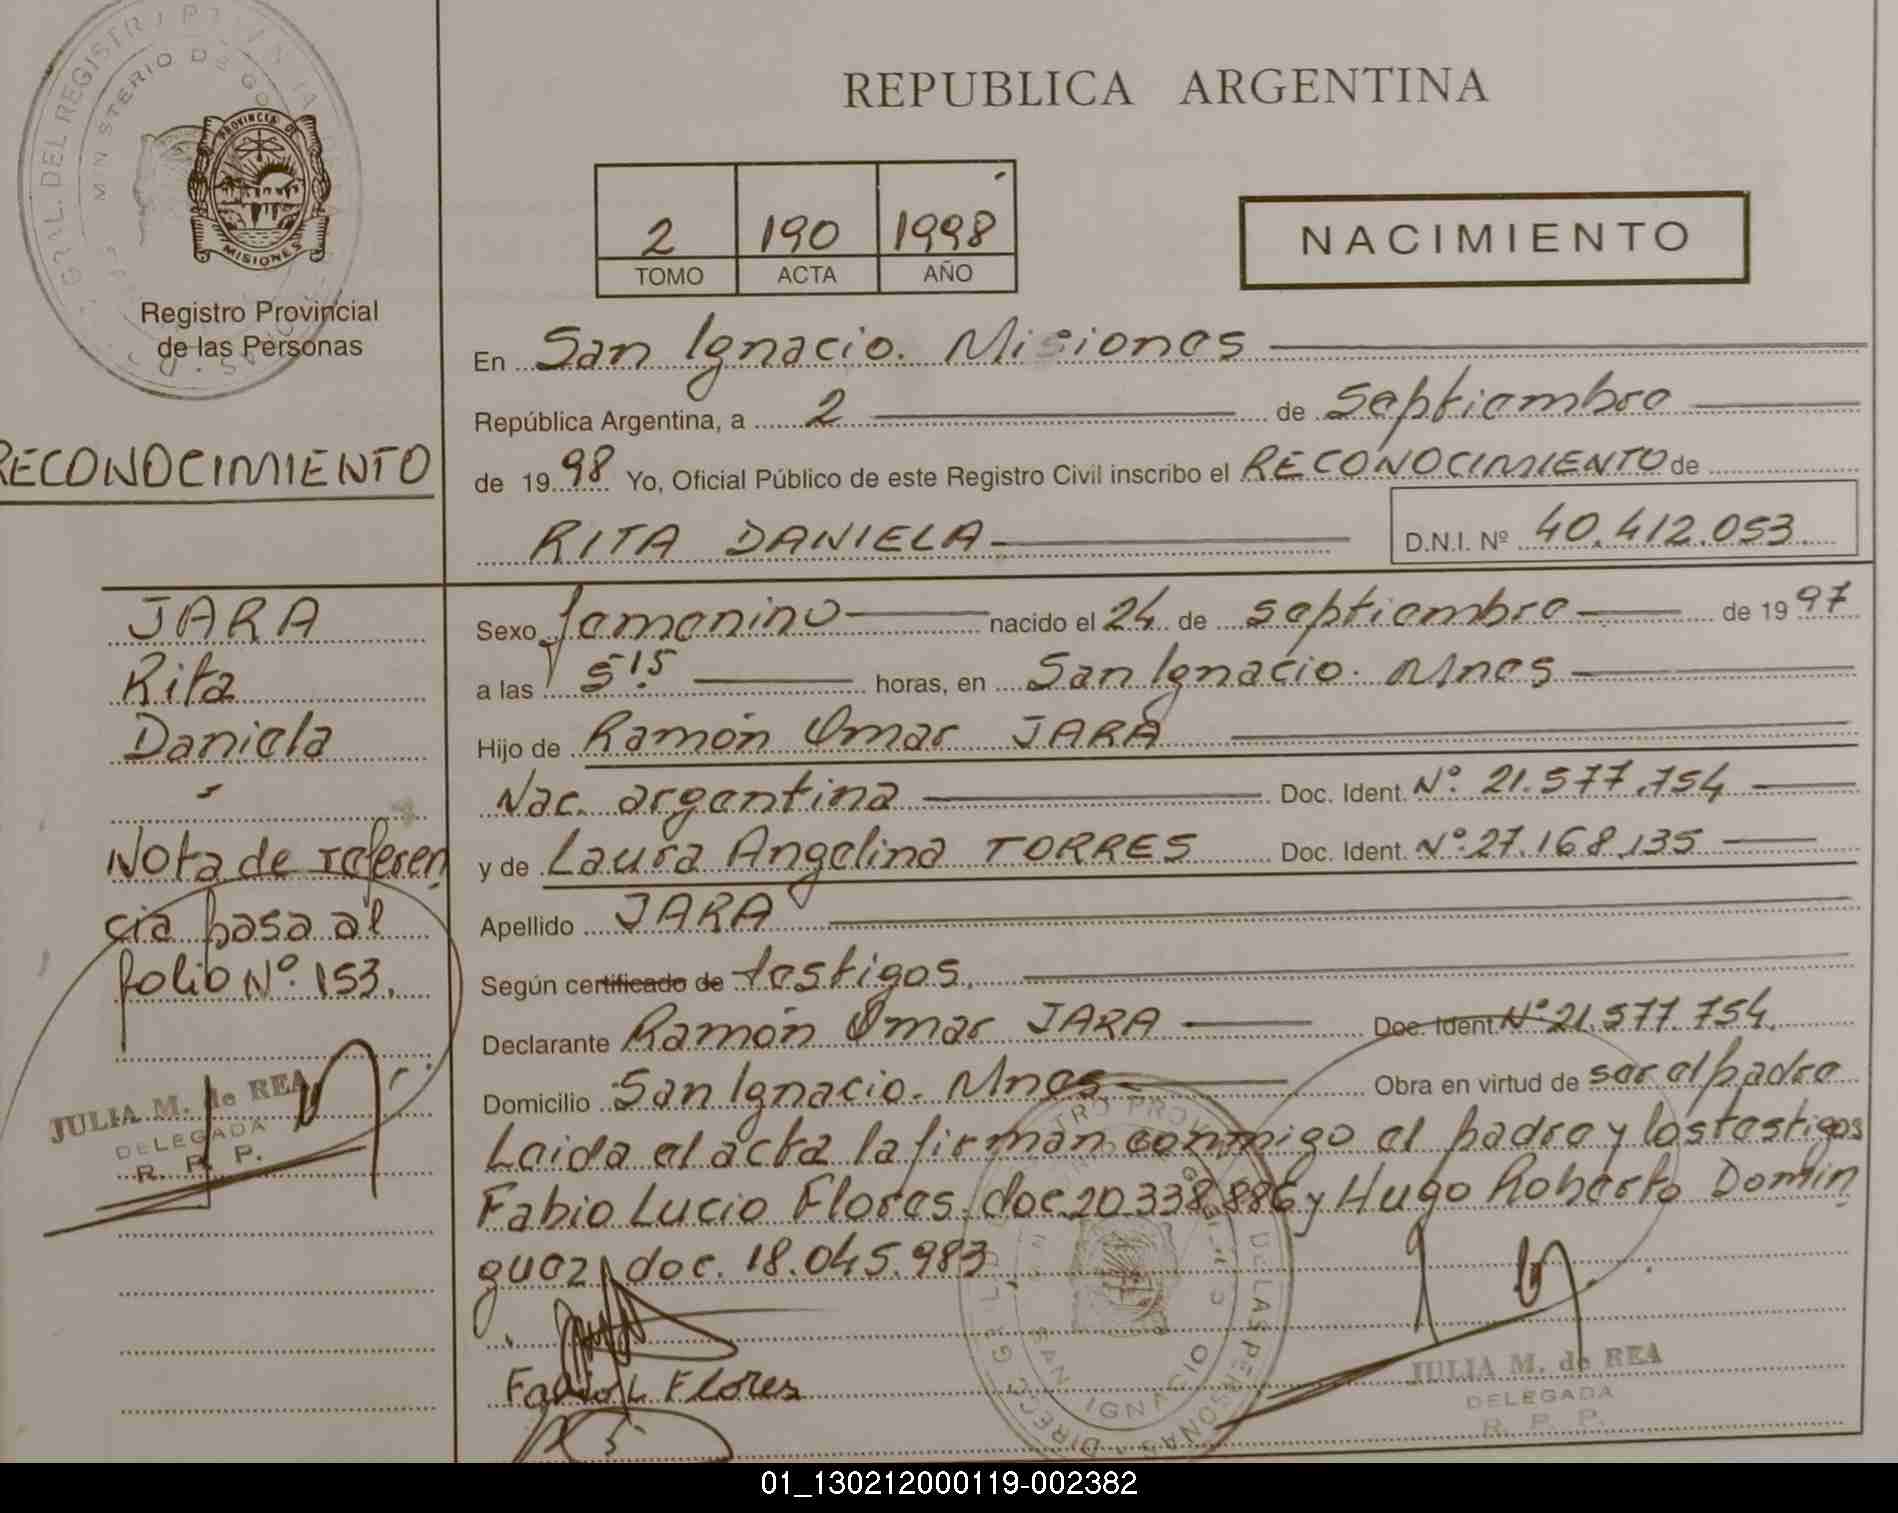 REPUBLICA ARGENTINA
GRAL. DEL REGISTR
MINISTERIO DE GO
PROVINCIA DE
MISIONES
Registro Provincial
de las Personas
2 190 1998
TOMO ACTA AÑO
NACIMIENTO
En San Ignacio. Misiones
República Argentina, a 2 de septiembre
RECONOCIMIENTO
de 1998 Yo, Oficial Público de este Registro Civil inscribo el RECONOCIMIENTO de
RITA DANIELA D.N.I. Nº 40.412.053.
JARA
Rita
Daniela
Nota de referen
cia pasa al
folio Nº. 153.
JULIA M. de REA
DELEGADA
R. P. P.
Sexo femenino nacido el 24 de septiembre de 1997
a las 5 15 horas, en San Ignacio. Mnes
Hijo de Ramón Omar JARA
Nac. argentina Doc. Ident. Nº. 21.577.754
y de Laura Angelina TORRES Doc. Ident. Nº. 27.168.135
Apellido JARA
Según certificado de testigos.
Declarante Ramón Omar JARA Doc. Ident. Nº 21.577.754.
Domicilio San Ignacio. Mnes Obra en virtud de ser el padre
Leida el acta la firman conmigo el padre y los testigos
Fabio Lucio Flores. doc. 20.338.886 y Hugo Roberto Domin
guez doc. 18.045.983
Fabio L Flores
SAN IGNACIO
DE LAS PERSONAS
JULIA M. de REA
DELEGADA
R. P. P.
01_130212000119-002382